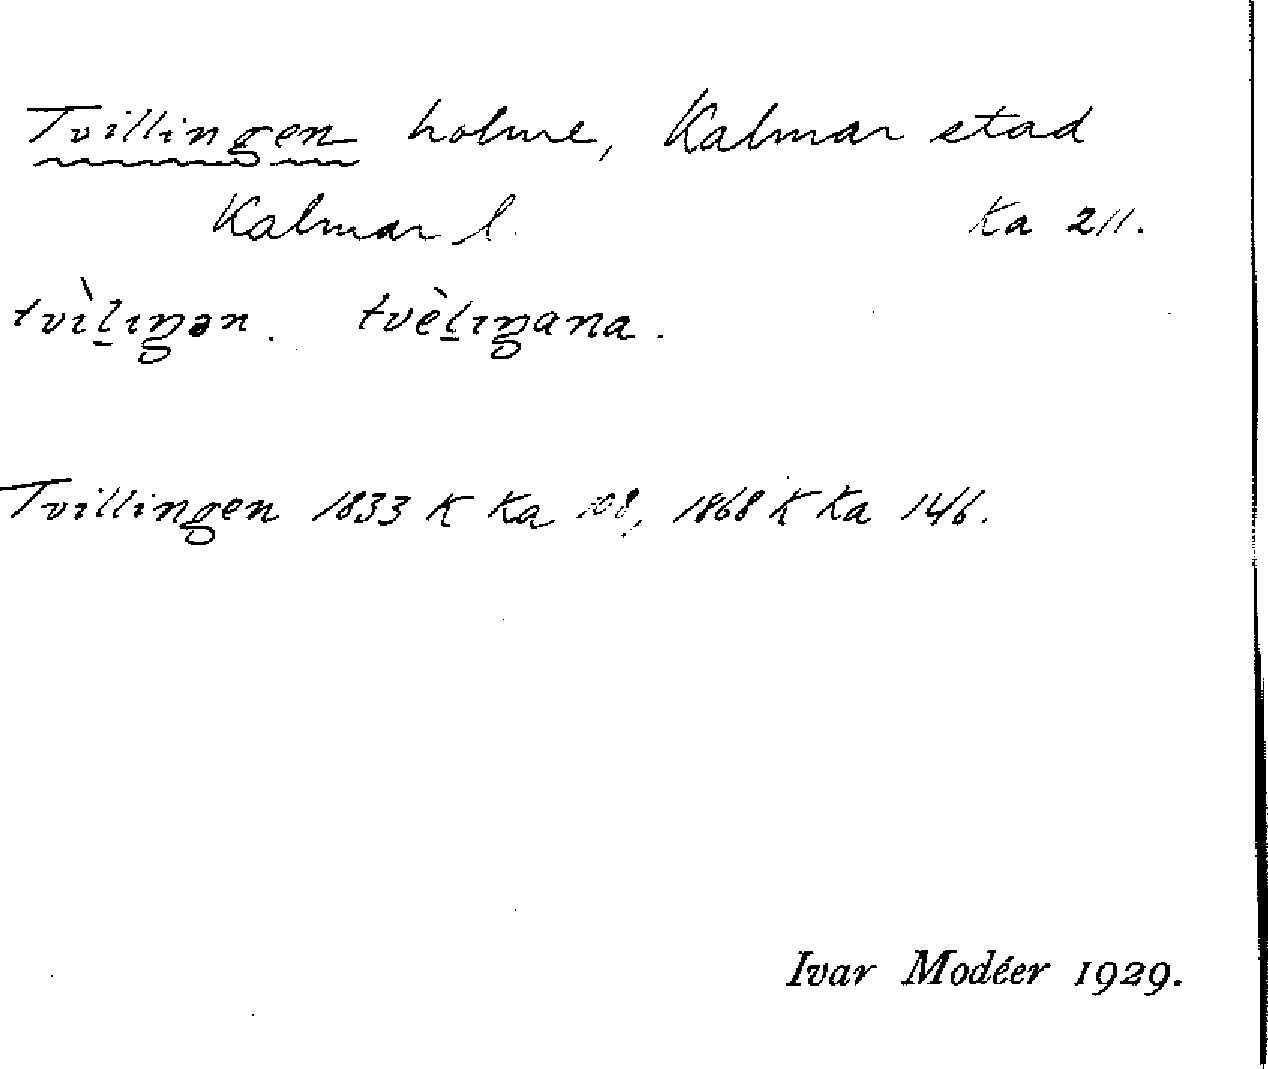 Tvillingen holme, Kalmar stad
Kalmar l. Ka 211.
tvìl̠ıŋən. tvèl̠ıŋana.
Tvillingen 1833 K Ka 108, 1868 K Ka 146.
Ivar Modéer 1929.